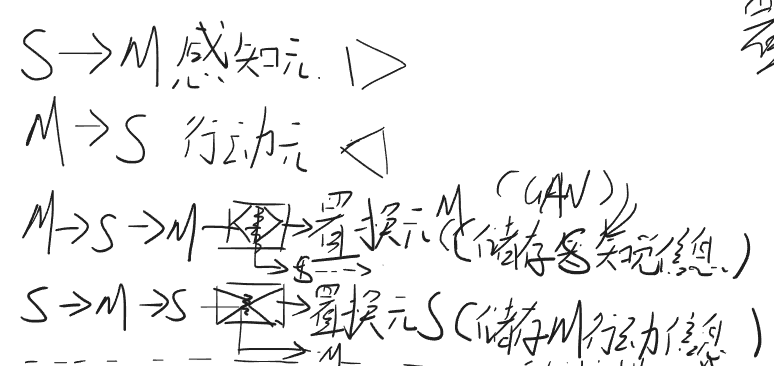 S→M 感知元
M→S 行动元
(GAN)
M→S→M → 置换元M (储存S知觉信息)
S
S→M→S → 置换元S (储存M行动信息)
M